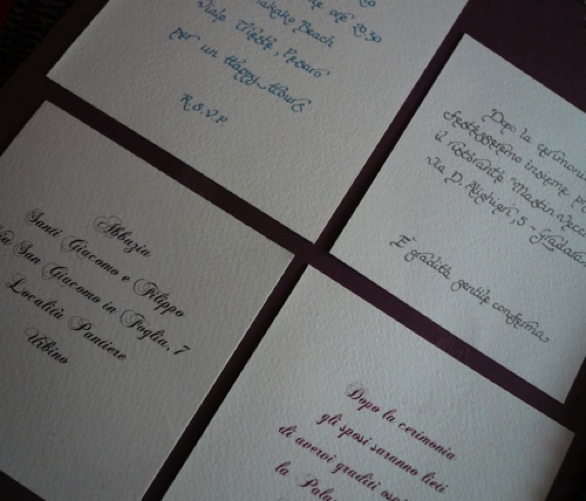 akaka Beach
Viale Trieste, Pesaro
per un Happy Hours
R.S.V.P.
Dopo la cerimonia
festeggeremo insieme
il ristorante "Mastin Vecc
Via D. Alighieri, 5 - Gradara
È gradita gentile conferma
Abbazia
Santi Giacomo e Filippo
San Giacomo in Foglia, 7
Località Pantiere
Urbino
Dopo la cerimonia
gli sposi saranno lieti
di avervi graditi
la